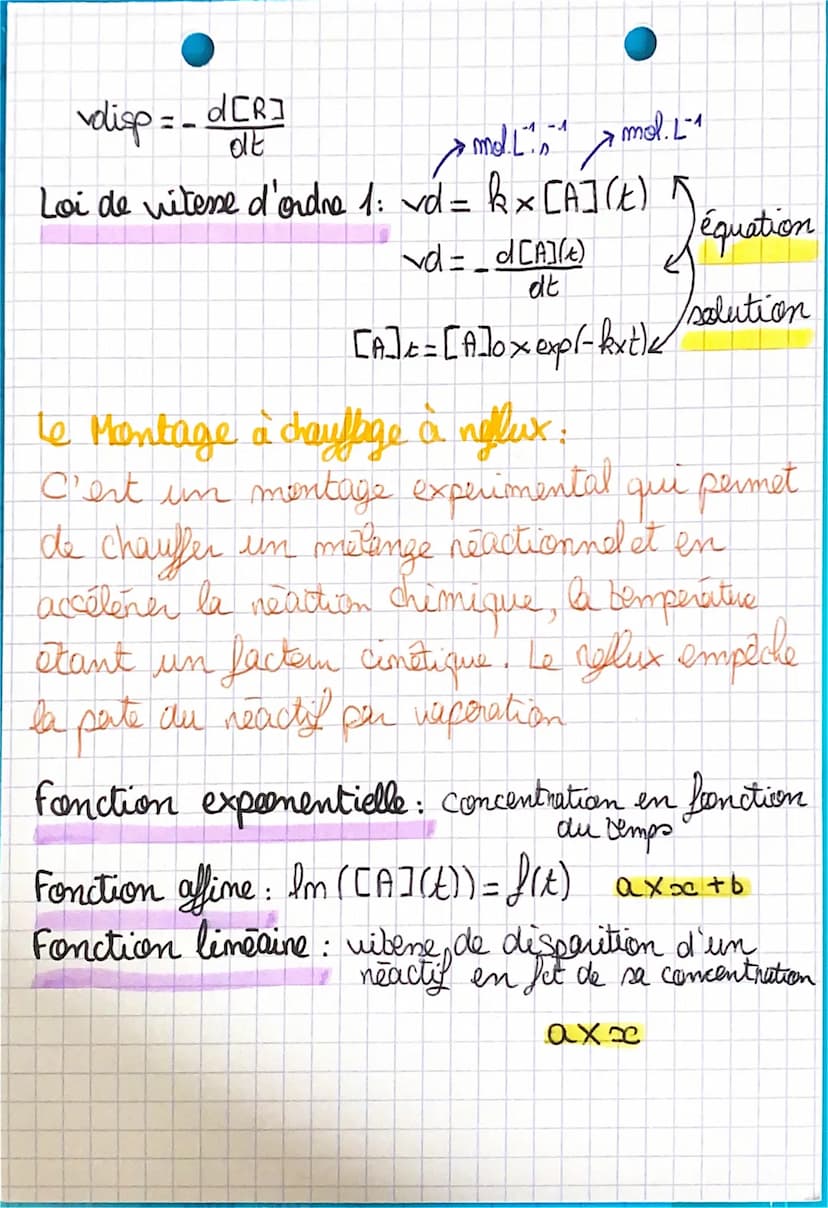 vdisp = - d[R]/dt
→ mol.L⁻¹.s⁻¹ → mol.L⁻¹
Loi de vitesse d'ordre 1: vd = k × [A](t)
équation
vd = - d[A](t)/dt
solution
[A]t = [A]0 × exp(-k×t)
Le Montage à chauffage à reflux :
C'est un montage experimental qui permet
de chauffer un mélange réactionnel et en
accélérer la réaction chimique, la température
étant un facteur cinétique. Le reflux empêche
la perte du réactif par vaporation
Fonction exponentielle : concentration en fonction
du temps
Fonction affine : ln([A](t)) = f(t) a×x+b
Fonction linéaire : vitesse de disparition d'un
réactif en fct de sa concentration
a×x